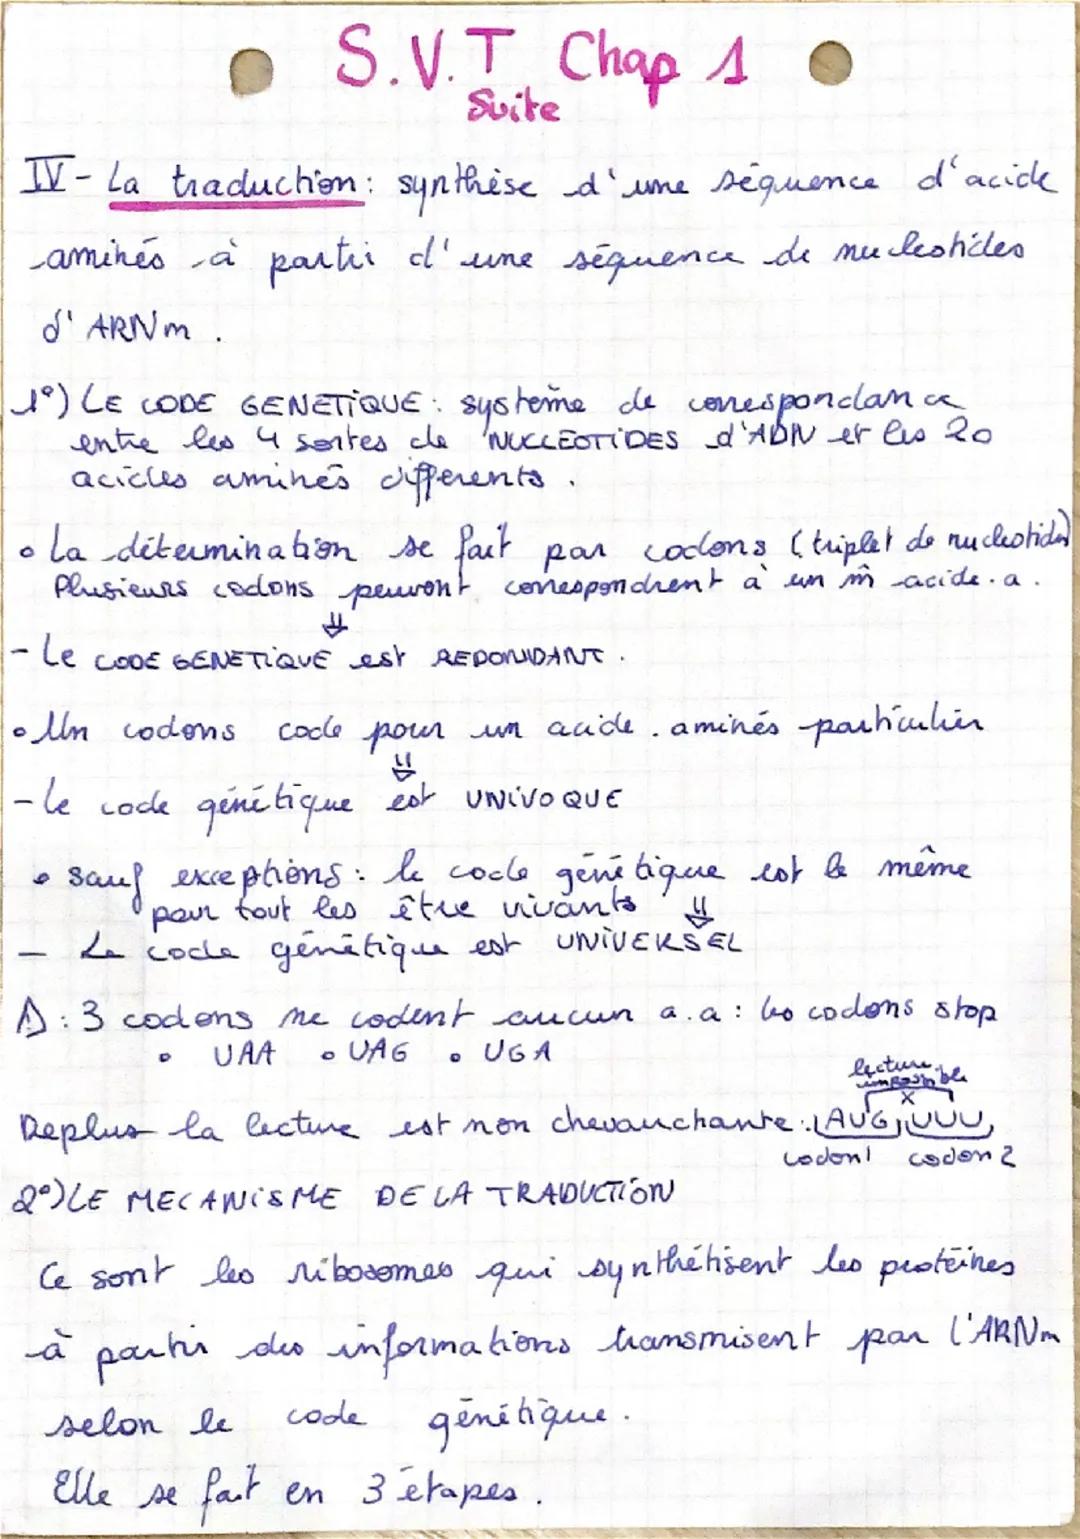 S.V.T Chap 1
Suite
IV - La traduction : synthèse d'une séquence d'acide
aminés à partir d'une séquence de nucleotides
d'ARNm.
1°) LE CODE GENETIQUE : système de correspondance
entre les 4 sortes de NUCLEOTIDES d'ADN et les 20
acides aminés différents.
• La détermination se fait par codons (triplet de nucleotides)
Plusieurs codons peuvent correspondrent à un m̂ acide.a.
⇓
- Le CODE GENETIQUE est REDONDANT.
• Un codons code pour un acide.aminés particulier
⇓
- le code génétique est UNIVOQUE
• sauf exceptions : le code génétique est le même
pour tout les être vivants ⇓
- Le code génétique est UNIVERSEL
⚠ : 3 codons ne codent aucun a.a : les codons stop
• UAA • UAG • UGA
lecture
impossible
x
Deplus la lecture est non chevauchante : AUG UUU
codon1 codon 2
2°) LE MECANISME DE LA TRADUCTION
Ce sont les ribosomes qui synthétisent les protéines
à partir des informations transmisent par l'ARNm
selon le code génétique.
Elle se fait en 3 étapes.